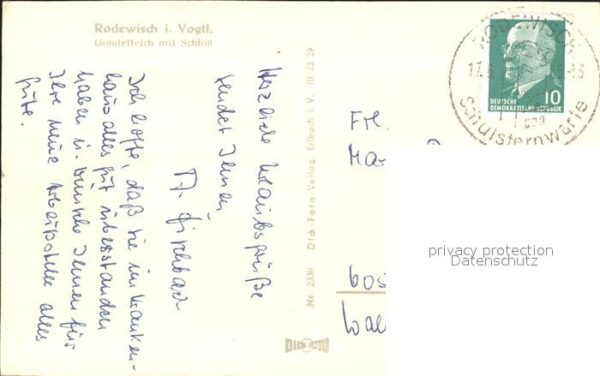 Rodewisch i. Vogtl.
Gondelteich mit Schloß
Herzliche Urlaubsgrüße
sendet Ihnen
Fischbach
Ich hoffe, daß Sie im Kranken-
haus alles gut überstanden
haben u. wünsche Ihnen für
Ihre neue Arbeitsstelle alles
Gute.
Nr. 2339 Dick-Foto-Verlag, Erlbach i. V. III/23/29
DICK FOTO
RODEWISCH
Schulsternwarte
10
DEUTSCHE
DEMOKRATISCHE REPUBLIK
Frl.
privacy protection
Datenschutz